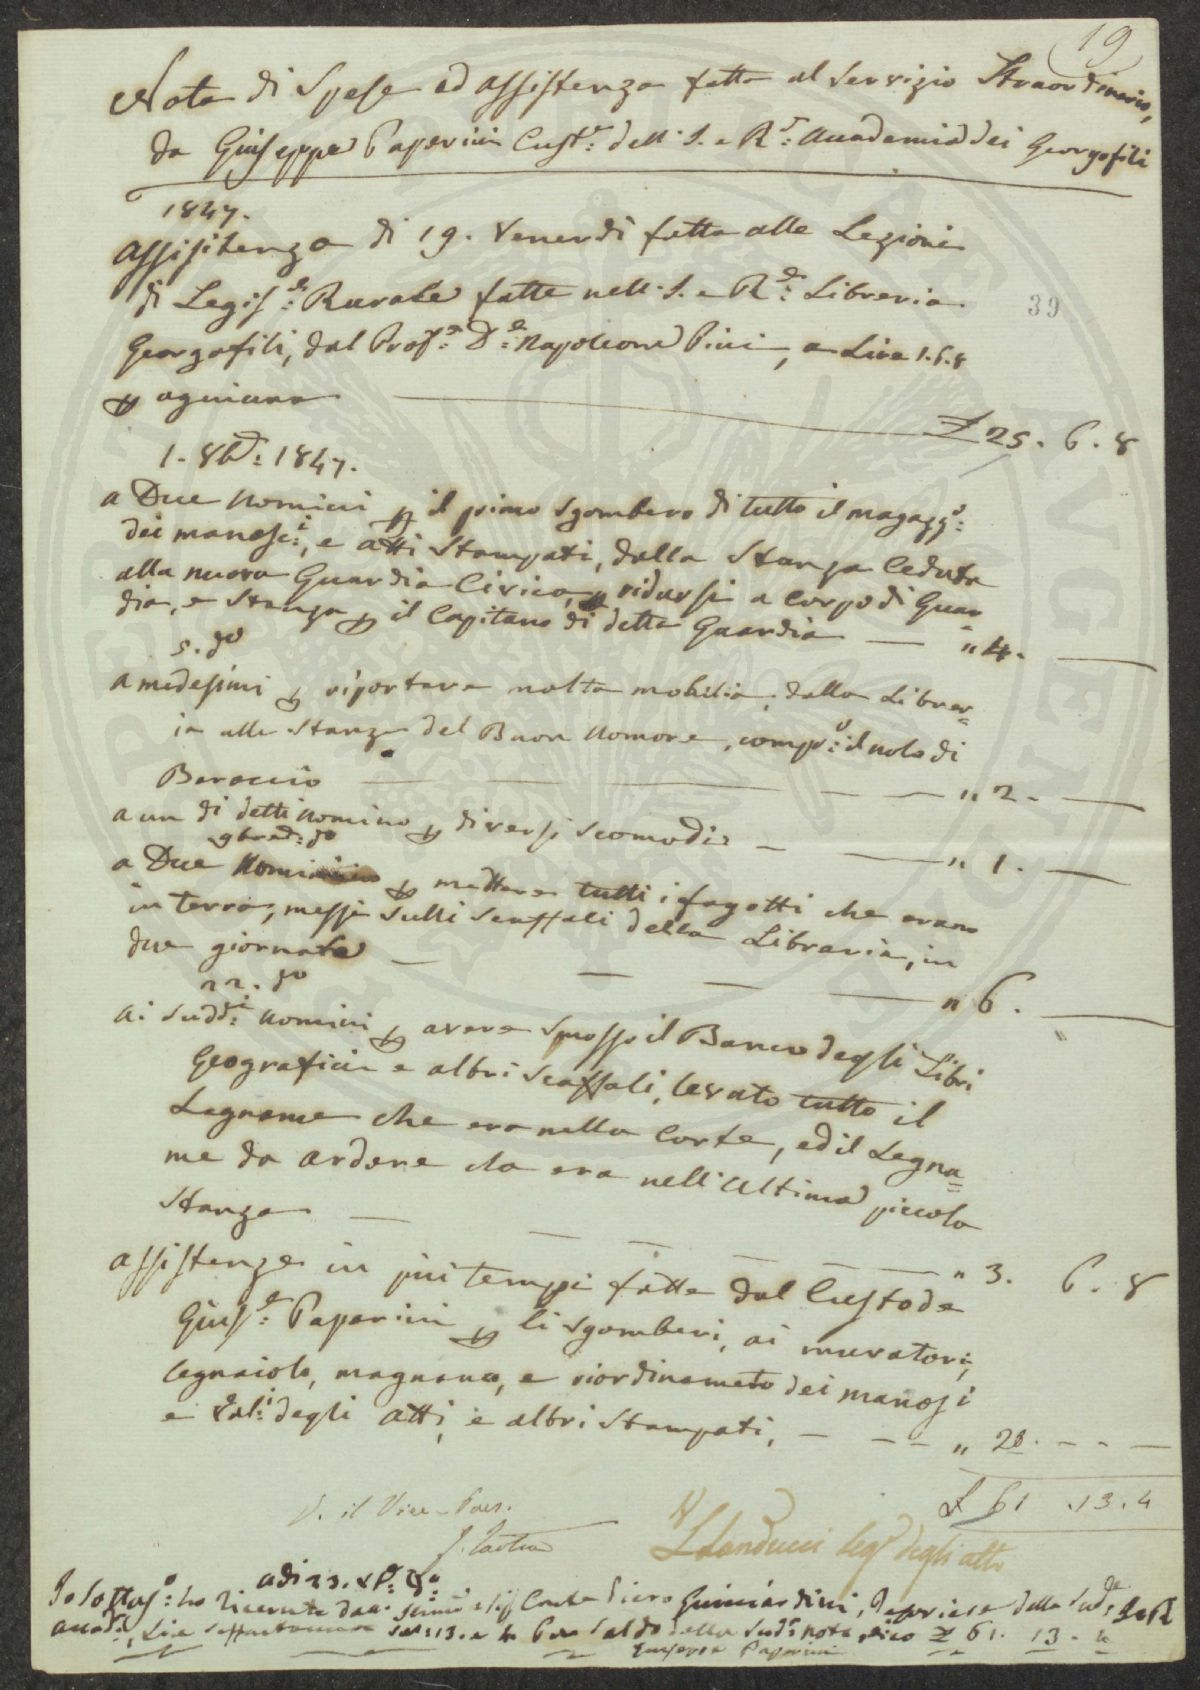 19
Nota di Spese ed assistenza fatta al servizio Straordinario,
da Giuseppe Paperini Custe: dell'I. e R.e: Academia dei Georgofili
1847.
assisitenza di 19. Venerdi fatta alle Lezioni
di Legis.e: Rurale fatte nell'I. e R.e: Libreria
39
Georgofili, dal Profe: De: Napoleone Pini, a Lire 1.6.8
p aguiuna £ 25. 6. 8
1. 8be: 1847.
a Due Uomini p il primo sgombero di tutto il magazzo:
dei manosci:, e atti Stampati, dalla Stanza Ceduta
alla nuova Guardia Civica, p ridursi a corpo di Guar
dia, e Stanza p il Capitano di detta Guardia — " 4. —
5. do
a medesimi p riportare molta mobilia, dalla Librer=
ia alle Stanze del Buon Umore, compo: il nolo di
Baroccio — " 2. —
a un di detti Uomino p diversi scomodi — " 1. —
9bre d: do
a Due Uomini p mettere tutti i fagotti che erano
in terra, messi sulli scaffali della Libreria, in
due giornate — " 6. —
22. do
ai suddi: Uomini p avere smosso il Banco degli Libri
Geografici e altri scaffali, levato tutto il
Legname che era nella Corte, ed il Legna=
me da ardere che era nell'ultima piccola
Stanza — " 3. 6. 8
assistenze in piu tempi fatte dal Custode
Giuse: Paperini p li sgomberi, ai muratori,
legnaiolo, magnano, e riordinameto dei manosi
e degli atti, e altri Stampati, — " 20. —
£ 61 .13.4
V. il Vice-Pres.
L Landucci Sego degli atti
adi 23.
Io Sottoso: ho ricevuto dal Conte Piero Guicciardini, della Sude: I e R
Accade:, Lire Sessantauna 13. e 4 Per Saldo della Sude: nota, dico £ 61. 13. 4
Giuseppe Paperini